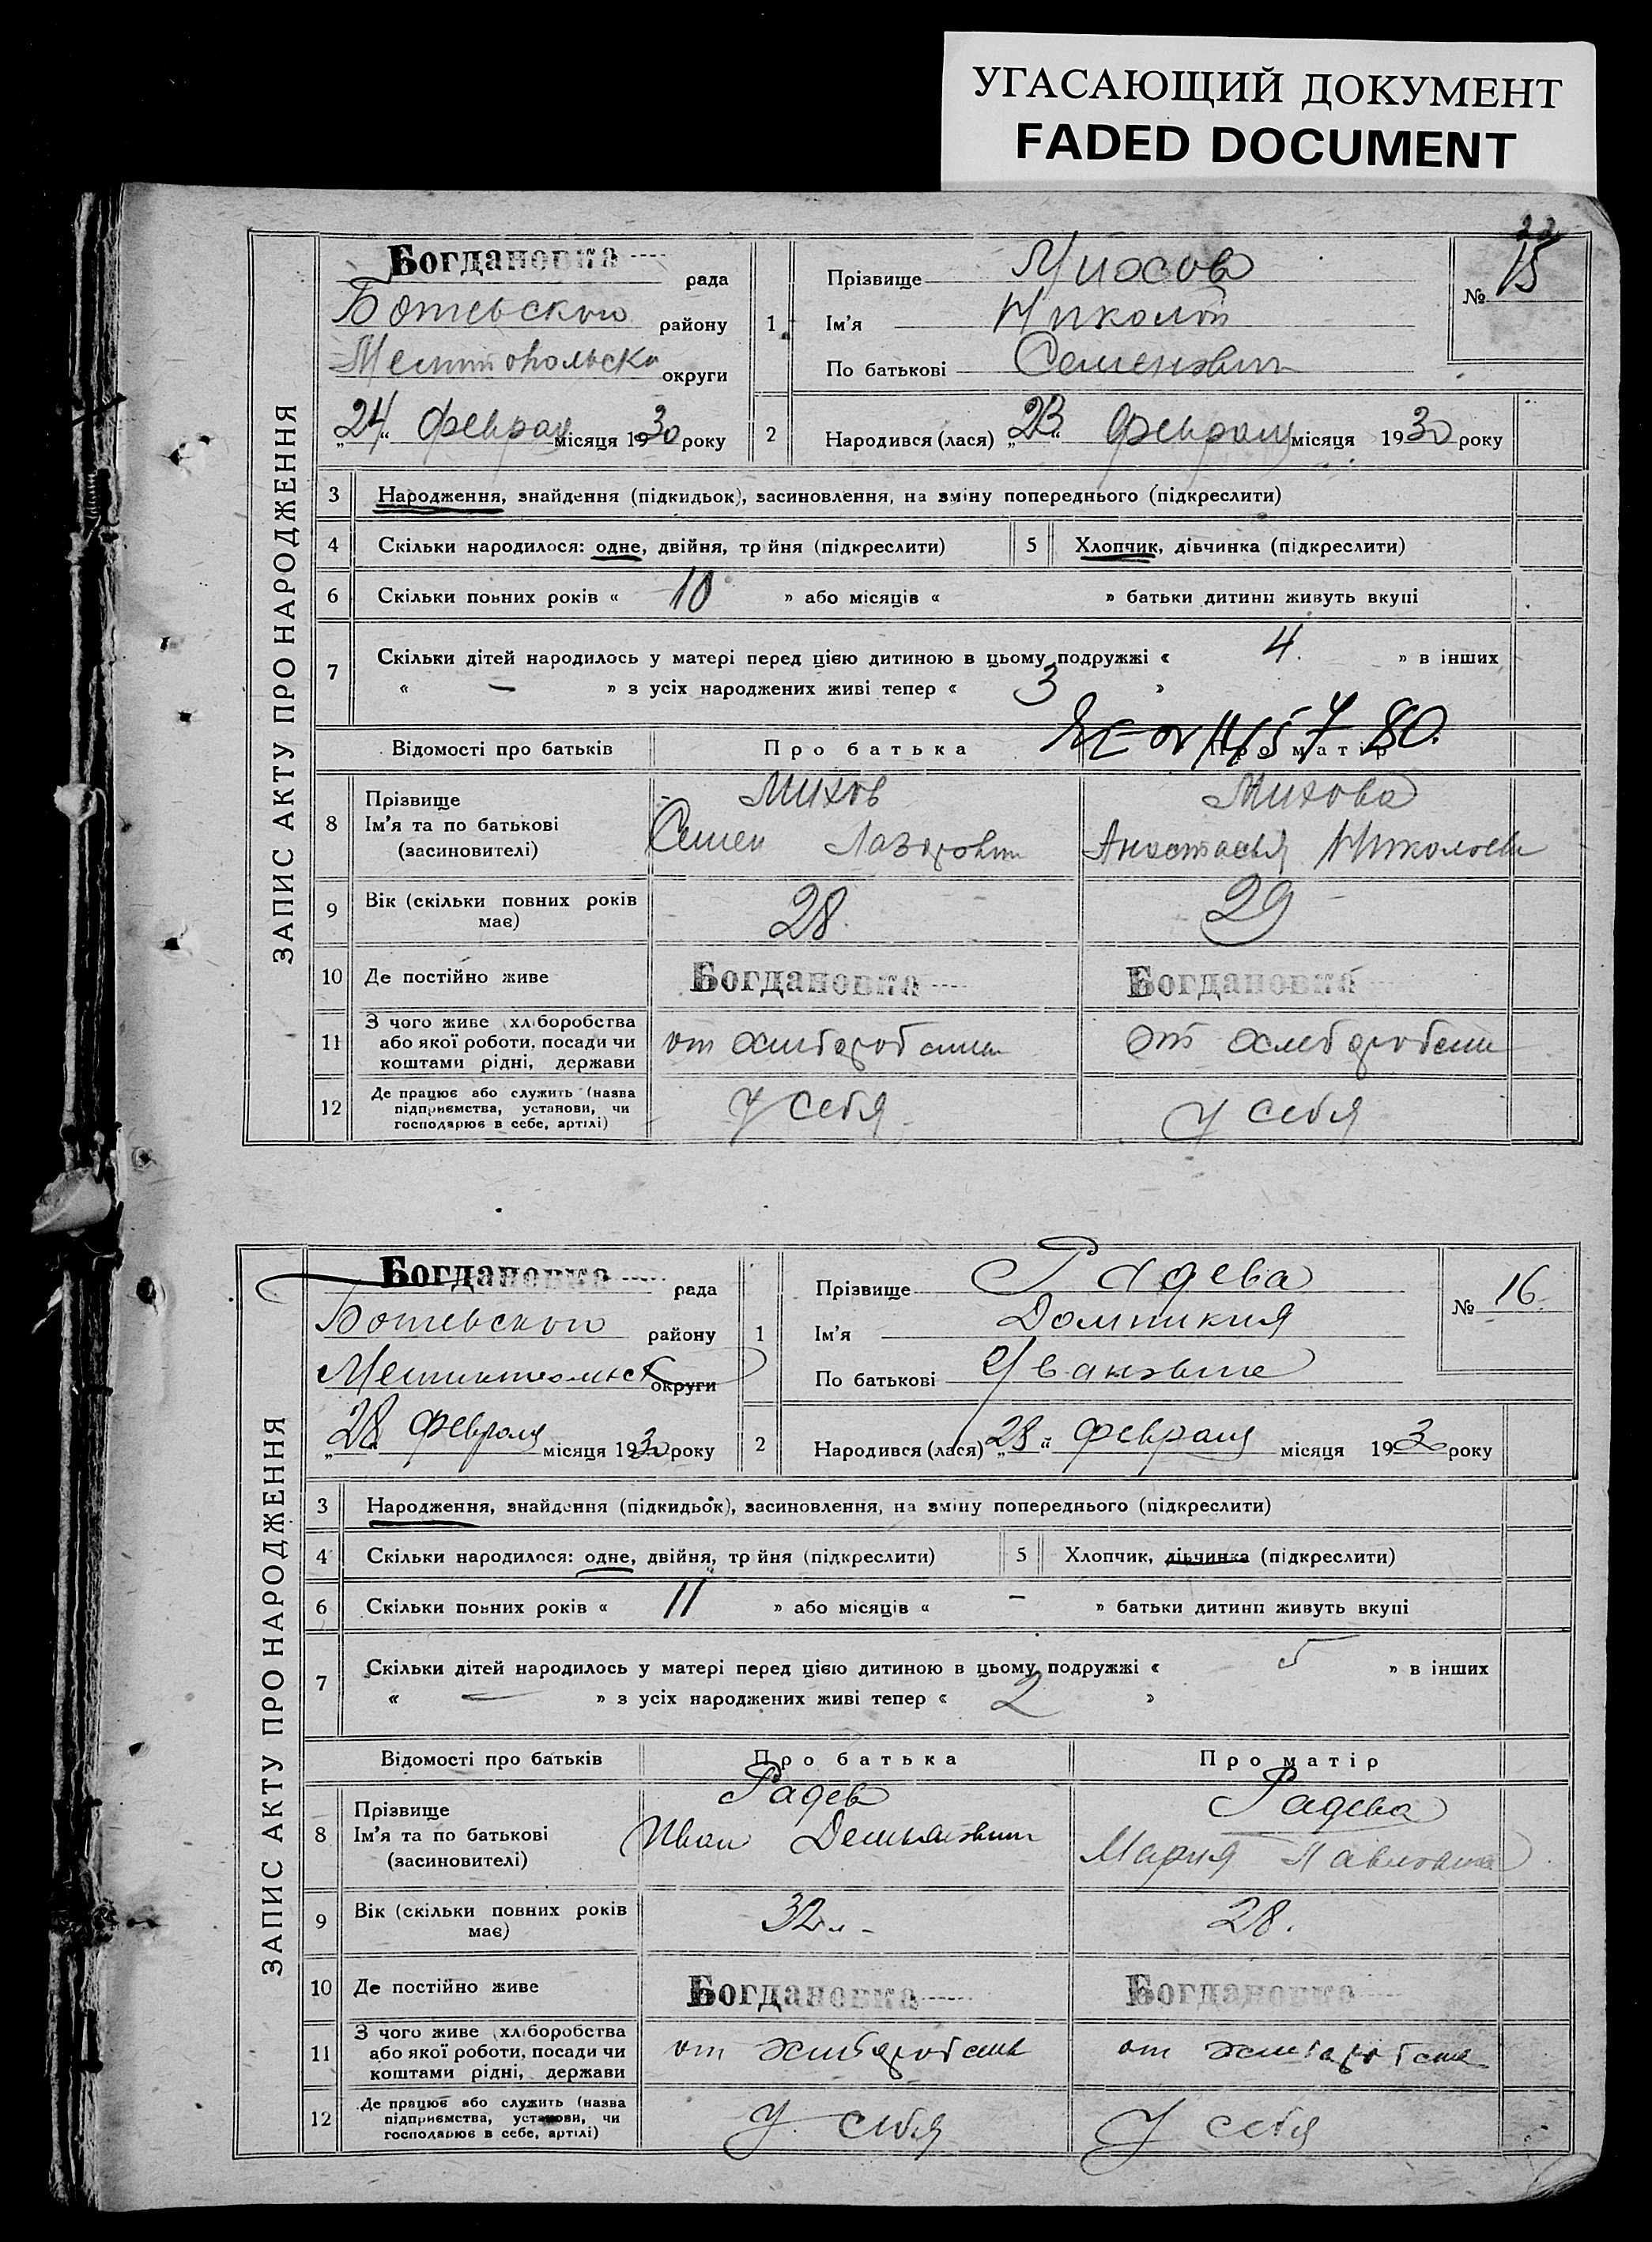 УГАСАЮЩИЙ ДОКУМЕНТ
FADED DOCUMENT
22
ЗАПИС АКТУ ПРО НАРОДЖЕННЯ
Богдановка рада
Ботевского району
округи
„24“ февраля місяця 1930 року
1 Прізвище Михов
Ім'я Николай
По батькові Семенович
№ 15
2 Народився (лася) „23“ февраля місяця 1930 року
3 Народження, знайдення (підкидьок), засиновлення, на зміну попереднього (підкреслити)
4 Скільки народилося: одне, двійня, трійня (підкреслити) 5 Хлопчик, дівчинка (підкреслити)
6 Скільки повних років « 10 » або місяців « » батьки дитини живуть вкупі
7 Скільки дітей народилось у матері перед цією дитиною в цьому подружжі « 4. » в інших
« — » з усіх народжених живі тепер « 3 »
Відомості про батьків Про батька Про матір
8 Прізвище Михов Михова
Ім'я та по батькові Семен Лазарович Анастасья
(засиновителі)
9 Вік (скільки повних років має) 28. 29
10 Де постійно живе Богдановка Богдановка
11 З чого живе (хліборобства
або якої роботи, посади чи от от
коштами рідні, держави
12 Де працює або служить (назва
підприємства, установи, чи у себя у себя
господарює в себе, артілі)
ЗАПИС АКТУ ПРО НАРОДЖЕННЯ
Богдановка рада
Ботевского району
округи
„28“ февраля місяця 1930 року
1 Прізвище Радева
Ім'я Домникия
По батькові Ивановна
№ 16
2 Народився (лася) „28“ февраля місяця 1930 року
3 Народження, знайдення (підкидьок), засиновлення, на зміну попереднього (підкреслити)
4 Скільки народилося: одне, двійня, трійня (підкреслити) 5 Хлопчик, дівчинка (підкреслити)
6 Скільки повних років « 11 » або місяців « — » батьки дитини живуть вкупі
7 Скільки дітей народилось у матері перед цією дитиною в цьому подружжі « 5 » в інших
« — » з усіх народжених живі тепер « 2 »
Відомості про батьків Про батька Про матір
8 Прізвище Радев Радева
Ім'я та по батькові Иван Мария
(засиновителі)
9 Вік (скільки повних років має) 32 28.
10 Де постійно живе Богдановка Богдановка
11 З чого живе (хліборобства
або якої роботи, посади чи от от
коштами рідні, держави
12 Де працює або служить (назва
підприємства, установи, чи у себя у себя
господарює в себе, артілі)